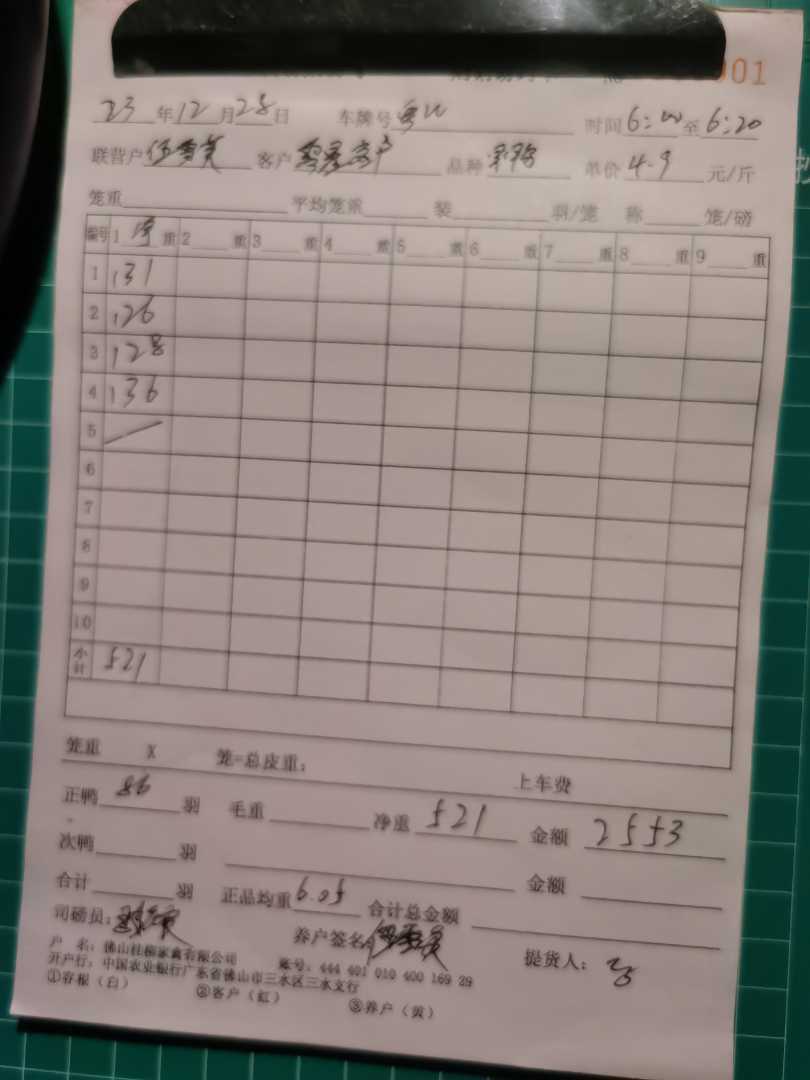 001
23 年 12 月 28 日 车牌号 粤W 时间 6:00 至 6:20
联营户 客户 品种 单价 4.9 元/斤
笼重 平均笼重 装 羽/笼 称 笼/磅
编号 1 净 重 2 重 3 重 4 重 5 重 6 重 7 重 8 重 9 重
1 131
2 126
3 128
4 136
5
6
7
8
9
10
小计 521
笼重 X 笼=总皮重: 上车费
正鸭 86 羽 毛重 净重 521 金额 2553
次鸭 羽 金额
合计 羽 正品均重 6.05 合计总金额
司磅员: 养户签名 提货人:
户 名: 佛山桂柳家禽有限公司 账号: 444 401 010 400 169 29
开户行: 中国农业银行广东省佛山市三水区三水支行
①存根(白) ②客户(红) ③养户(黄)